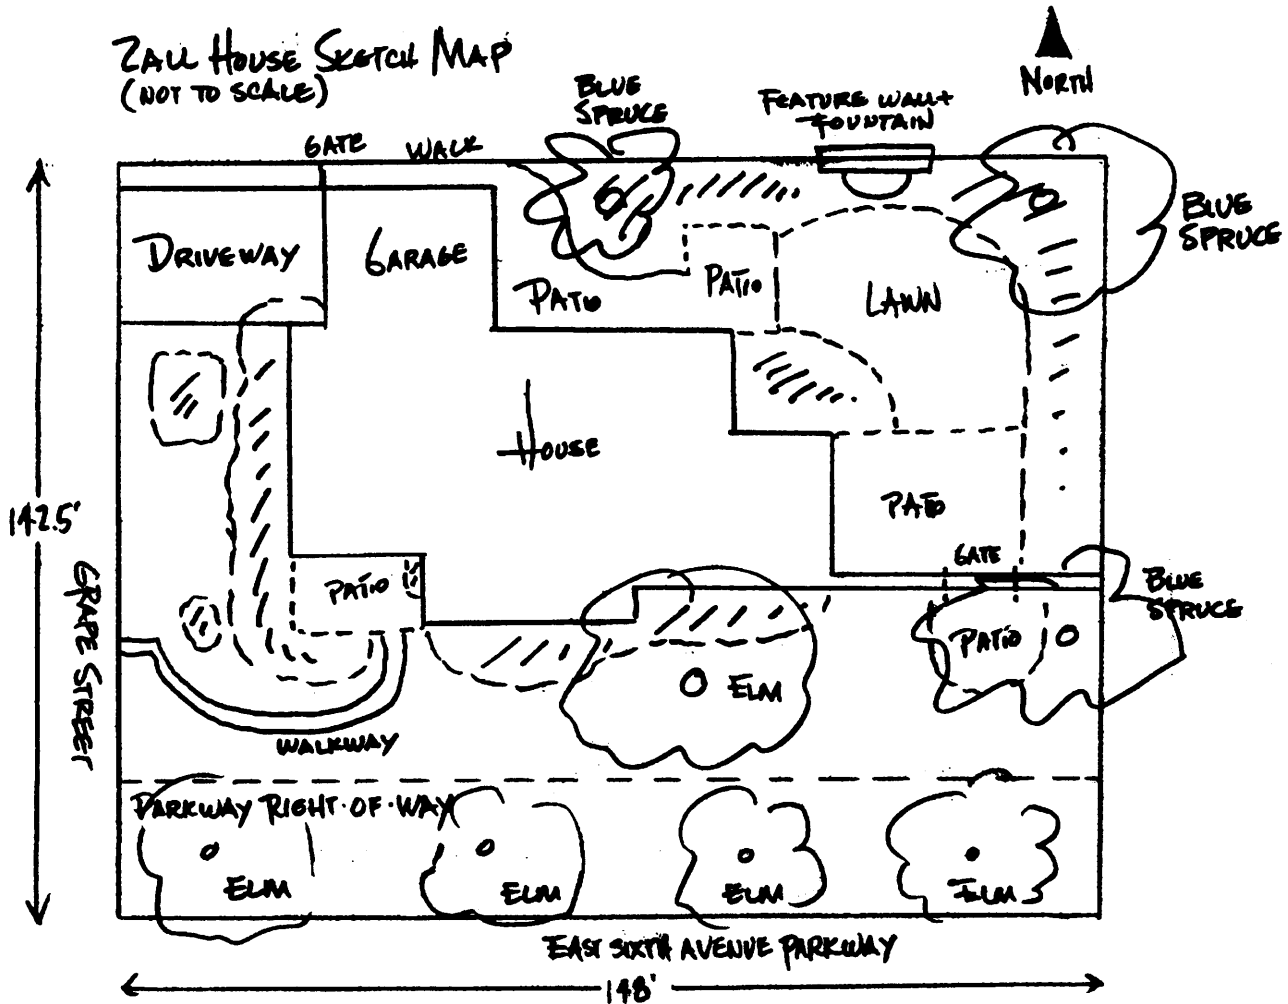 ZALL HOUSE SKETCH MAP
(NOT TO SCALE)
NORTH
BLUE
SPRUCE
FEATURE WALL +
FOUNTAIN
GATE
WALK
BLUE
SPRUCE
DRIVEWAY
GARAGE
PATIO
PATIO
LAWN
HOUSE
142.5'
PATIO
GATE
PATIO
BLUE
SPRUCE
PATIO
GRAPE STREET
ELM
WALKWAY
PARKWAY RIGHT-OF-WAY
ELM
ELM
ELM
ELM
EAST SIXTH AVENUE PARKWAY
148'